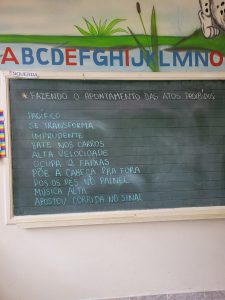 ABCDEFGHIJKLMNO
ESQUERDA
FAZENDO O APONTAMENTO DAS ATOS PROIBIDOS
PACÍFICO
SE TRANSFORMA
IMPRUDENTE
BATE NOS CARROS
ALTA VELOCIDADE
OCUPA 2 FAIXAS
PÕE A CABEÇA PRA FORA
PÔS OS PÉS NO PAINEL
MÚSICA ALTA
APOSTOU CORRIDA NO SINAL